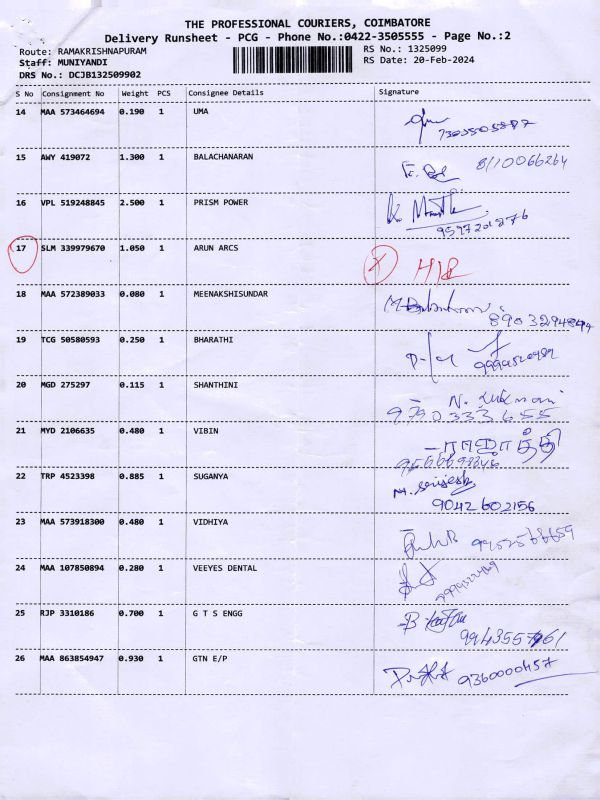 THE PROFESSIONAL COURIERS, COIMBATORE
Delivery Runsheet - PCG - Phone No.:0422-3505555 - Page No.:2
Route: RAMAKRISHNAPURAM
Staff: MUNIYANDI
DRS No.: DCJB132509902
RS No.: 1325099
RS Date: 20-Feb-2024
S No Consignment No Weight PCS Consignee Details Signature
14 MAA 573464694 0.190 1 UMA
15 AWY 419072 1.300 1 BALACHANARAN
8110066264
16 VPL 519248845 2.500 1 PRISM POWER
9597201276
17 SLM 339979670 1.050 1 ARUN ARCS
18 MAA 572389033 0.080 1 MEENAKSHISUNDAR
19 TCG 50580593 0.250 1 BHARATHI
20 MGD 275297 0.115 1 SHANTHINI
9790333655
21 MYD 2106635 0.480 1 VIBIN
22 TRP 4523398 0.885 1 SUGANYA
9042602156
23 MAA 573918300 0.480 1 VIDHIYA
24 MAA 107850894 0.280 1 VEEYES DENTAL
25 RJP 3310186 0.700 1 G T S ENGG
26 MAA 863854947 0.930 1 GTN E/P
9360000457